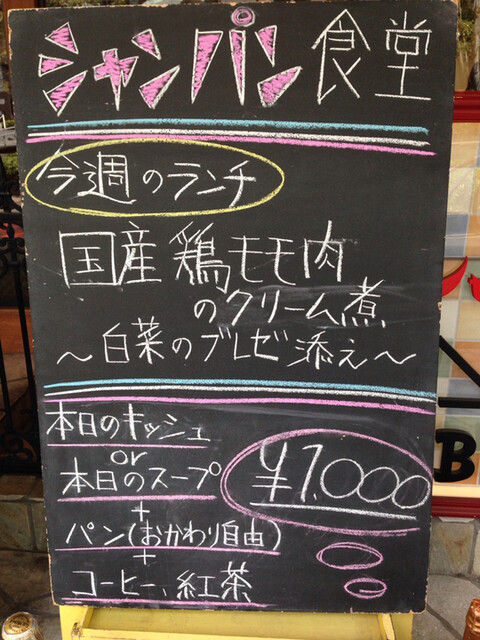 シャンパン食堂
今週のランチ
国産鶏モモ肉
のクリーム煮
～白菜のブレゼ添え～
本日のキッシュ
or
本日のスープ
+
パン(おかわり自由)
+
コーヒー、紅茶
¥1,000
B